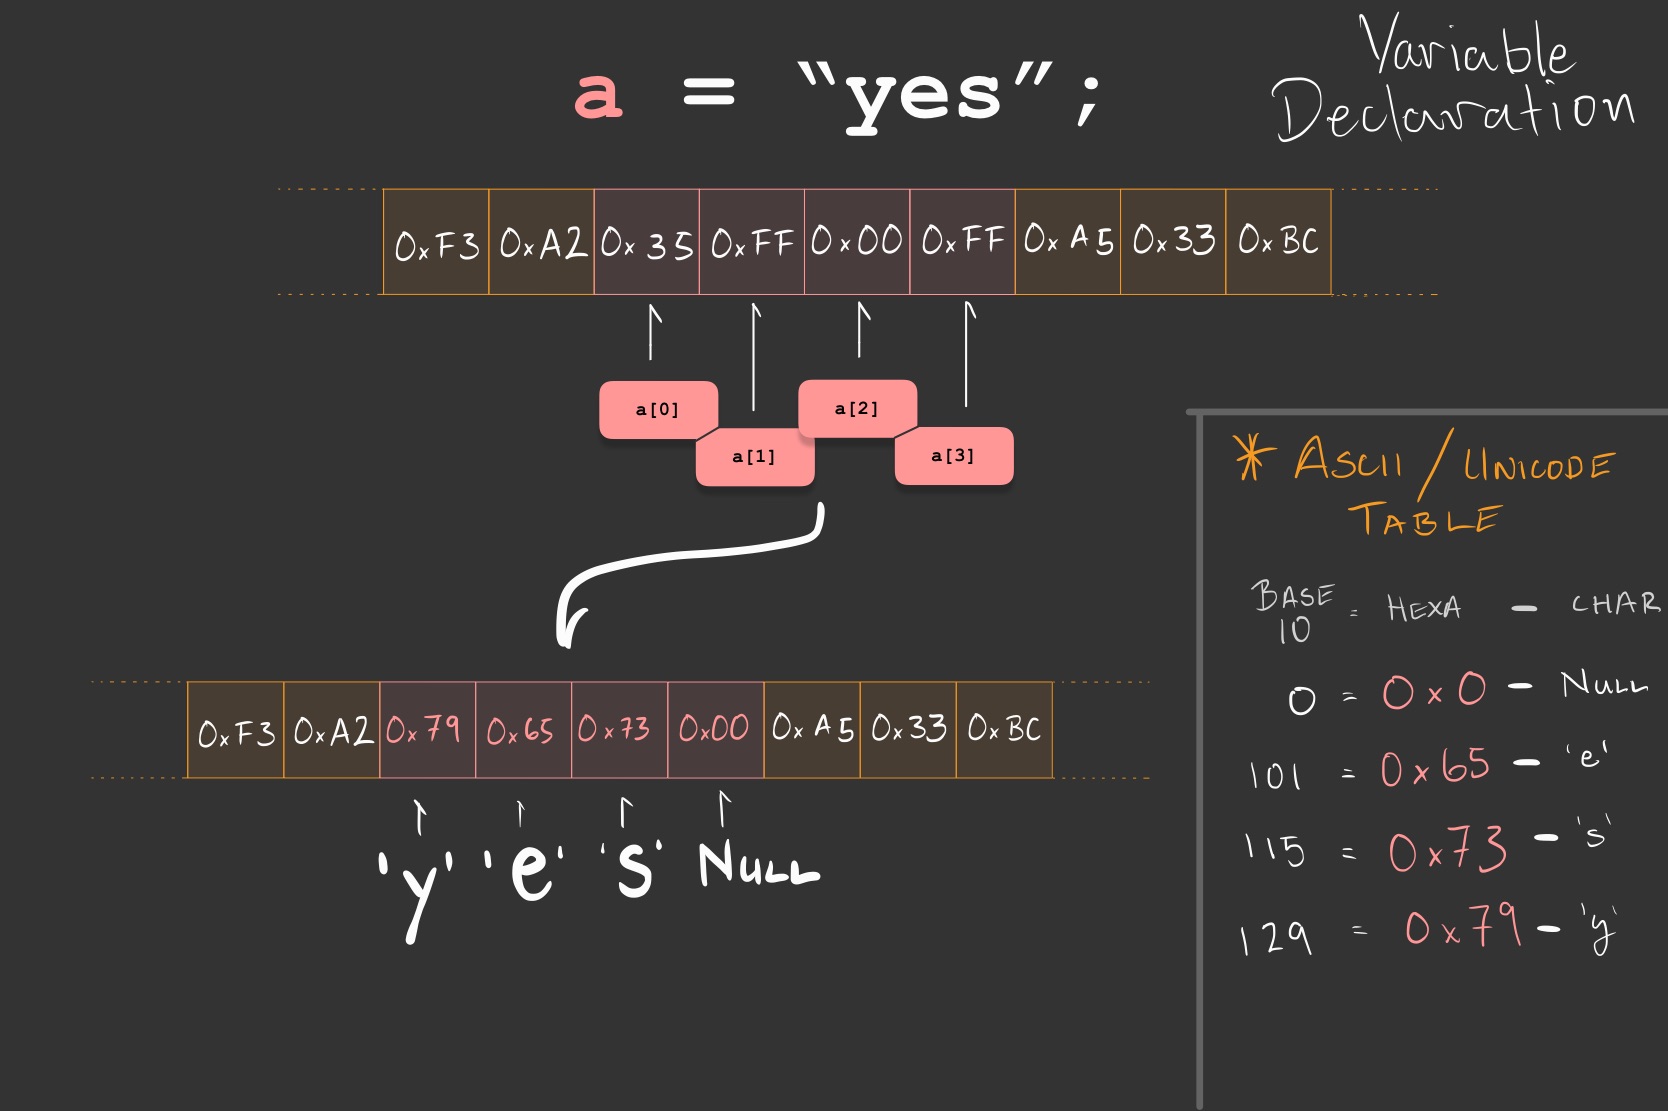 Variable
Declaration
a = “yes”;
0xF3 0xA2 0x35 0xFF 0x00 0xFF 0xA5 0x33 0xBC
a[0] a[1] a[2] a[3]
0xF3 0xA2 0x79 0x65 0x73 0x00 0xA5 0x33 0xBC
'y' 'e' 's' NULL
* ASCII / UNICODE
TABLE
BASE 10 = HEXA - CHAR
0 = 0x0 - NULL
101 = 0x65 - 'e'
115 = 0x73 - 's'
129 = 0x79 - 'y'